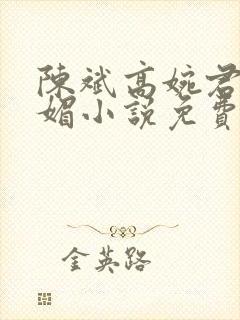 陳斌高婉君
媚小說免費
金英路